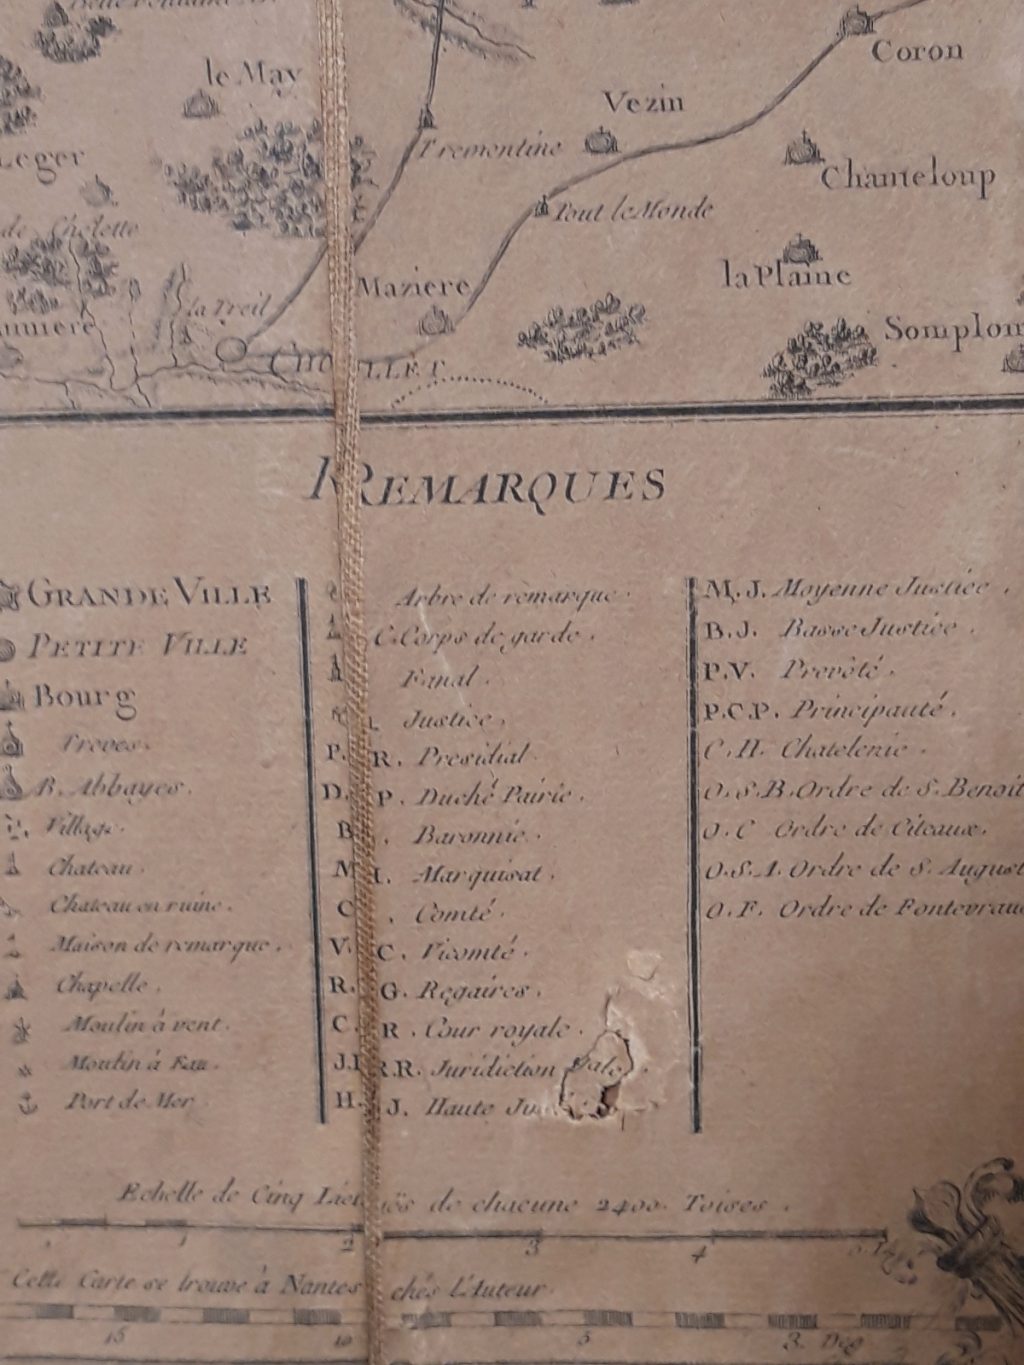 Coron
le May
Vezin
Leger
Trementine
Chanteloup
de Cholette
Tout le Monde
Maziere
la Plaine
la Treil
Somplon
CHOLLET
REMARQUES
GRANDE VILLE
PETITE VILLE
Bourg
Treves.
R. Abbayes.
Village.
Chateau.
Chateau en ruine.
Maison de remarque.
Chapelle.
Moulin à vent.
Moulin à Eau.
Port de Mer
Arbre de remarque.
C. Corps de garde.
Fanal.
Justice,
P. R. Presidial
D. P. Duché Pairie.
B. Baronnie.
M. Marquisat.
C. Comté.
V. C. Vicomté.
R. G. Regaires.
C. R. Cour royale.
J. R. R. Juridiction
H. J. Haute
M. J. Moyenne Justice.
B. J. Basse Justice.
P. V. Prevôté.
P. C. P. Principauté.
C. H. Chatelenie.
O. S. B. Ordre de S. Benoit
O. C Ordre de Citeaux.
O. S. A. Ordre de S. August
O. F. Ordre de Fontevraud
Echelle de Cinq Lieuës de chacune 2400 Toises.
1 2 3 4
Cette Carte se trouve à Nantes chés L'Auteur.
15 10 5 3. Deg